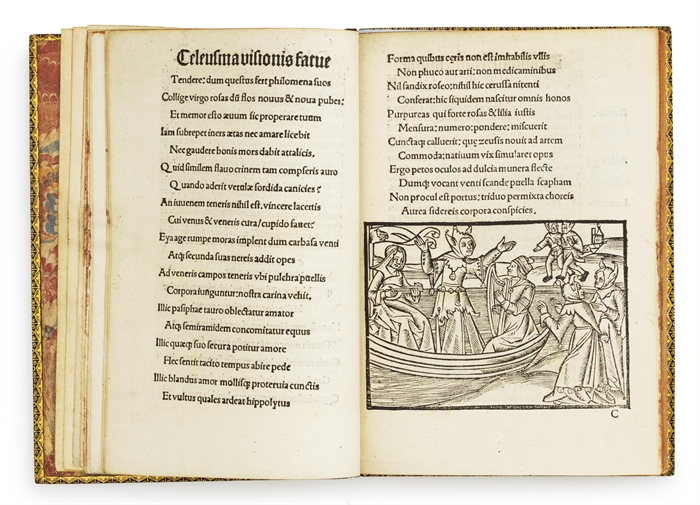 Celeusma visionis fatue
Tendere: dum questus fert philomena suos
Collige virgo rosas dũ flos nouus & noua pubes:
Et memor esto æuum sic properare tuum
Iam subrepet iners ætas nec amare licebit
Nec gaudere bonis mors dabit attalicis.
Quid similem flauo crinem tam compseris auro
Quando aderit vetulæ sordida canicies?
An iuuenem teneris nihil est, vincere lacertis
Cui venus & veneris cura/cupido fauet?
Eya age rumpe moras implent dum carbasa venti
Atq; secunda suas nereis addit opes
Ad veneris campos teneris vbi pulchra puellis
Corpora iunguntur; nostra carina vehit.
Illic pasiphae tauro oblectatur amator
Atq; semiramidem concomitatur equus
Illic quæq; suo secura potitur amore
Hec sentit tacito tempus abire pede
Illic blandus amor mollisq; proteruia cunctis
Et vultus quales ardeat hippolytus
Forma quibus egris non est imitabilis vllis
Non phuco aut arti: non medicaminibus
Nil sandix roseo; nihil hic cerussa nitenti
Conferat; hic siquidem nascitur omnis honos
Purpureas qui forte rosas & lilia iustis
Mensura; numero; pondere; miscuerit
Cunctaq; calluerit; quæ zeusis nouit ad artem
Commoda; natiuum vix simularet opus
Ergo petos oculos ad dulcia munera flecte
Dumq; vocant venti scande puella scapham
Non procul est portus; triduo permixta choreis
Aurea sidereis corpora conspicies.
C